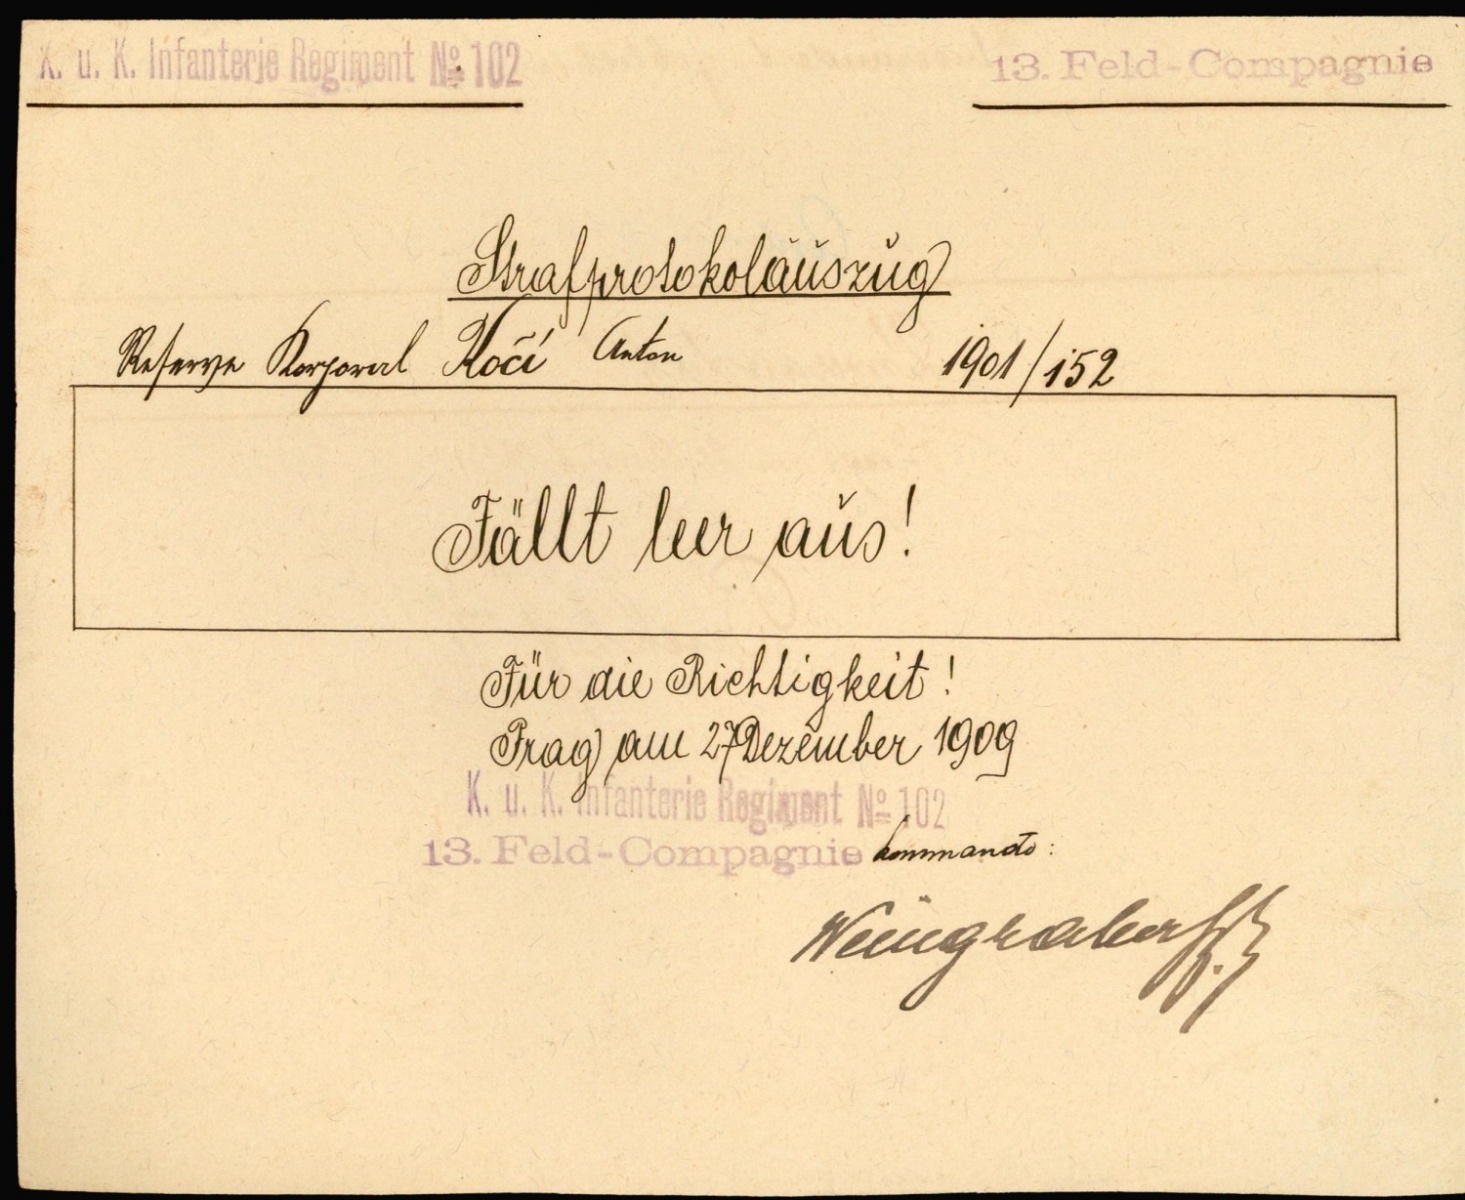 K. u. K. Infanterie Regiment № 102
13. Feld-Compagnie
Strafprotokolauszug
Reserve Korporal Kočí Anton 1901/152
Fällt leer aus!
Für die Richtigkeit!
Prag am 27 Dezember 1909
K. u. K. Infanterie Regiment № 102
13. Feld-Compagnie kommando: